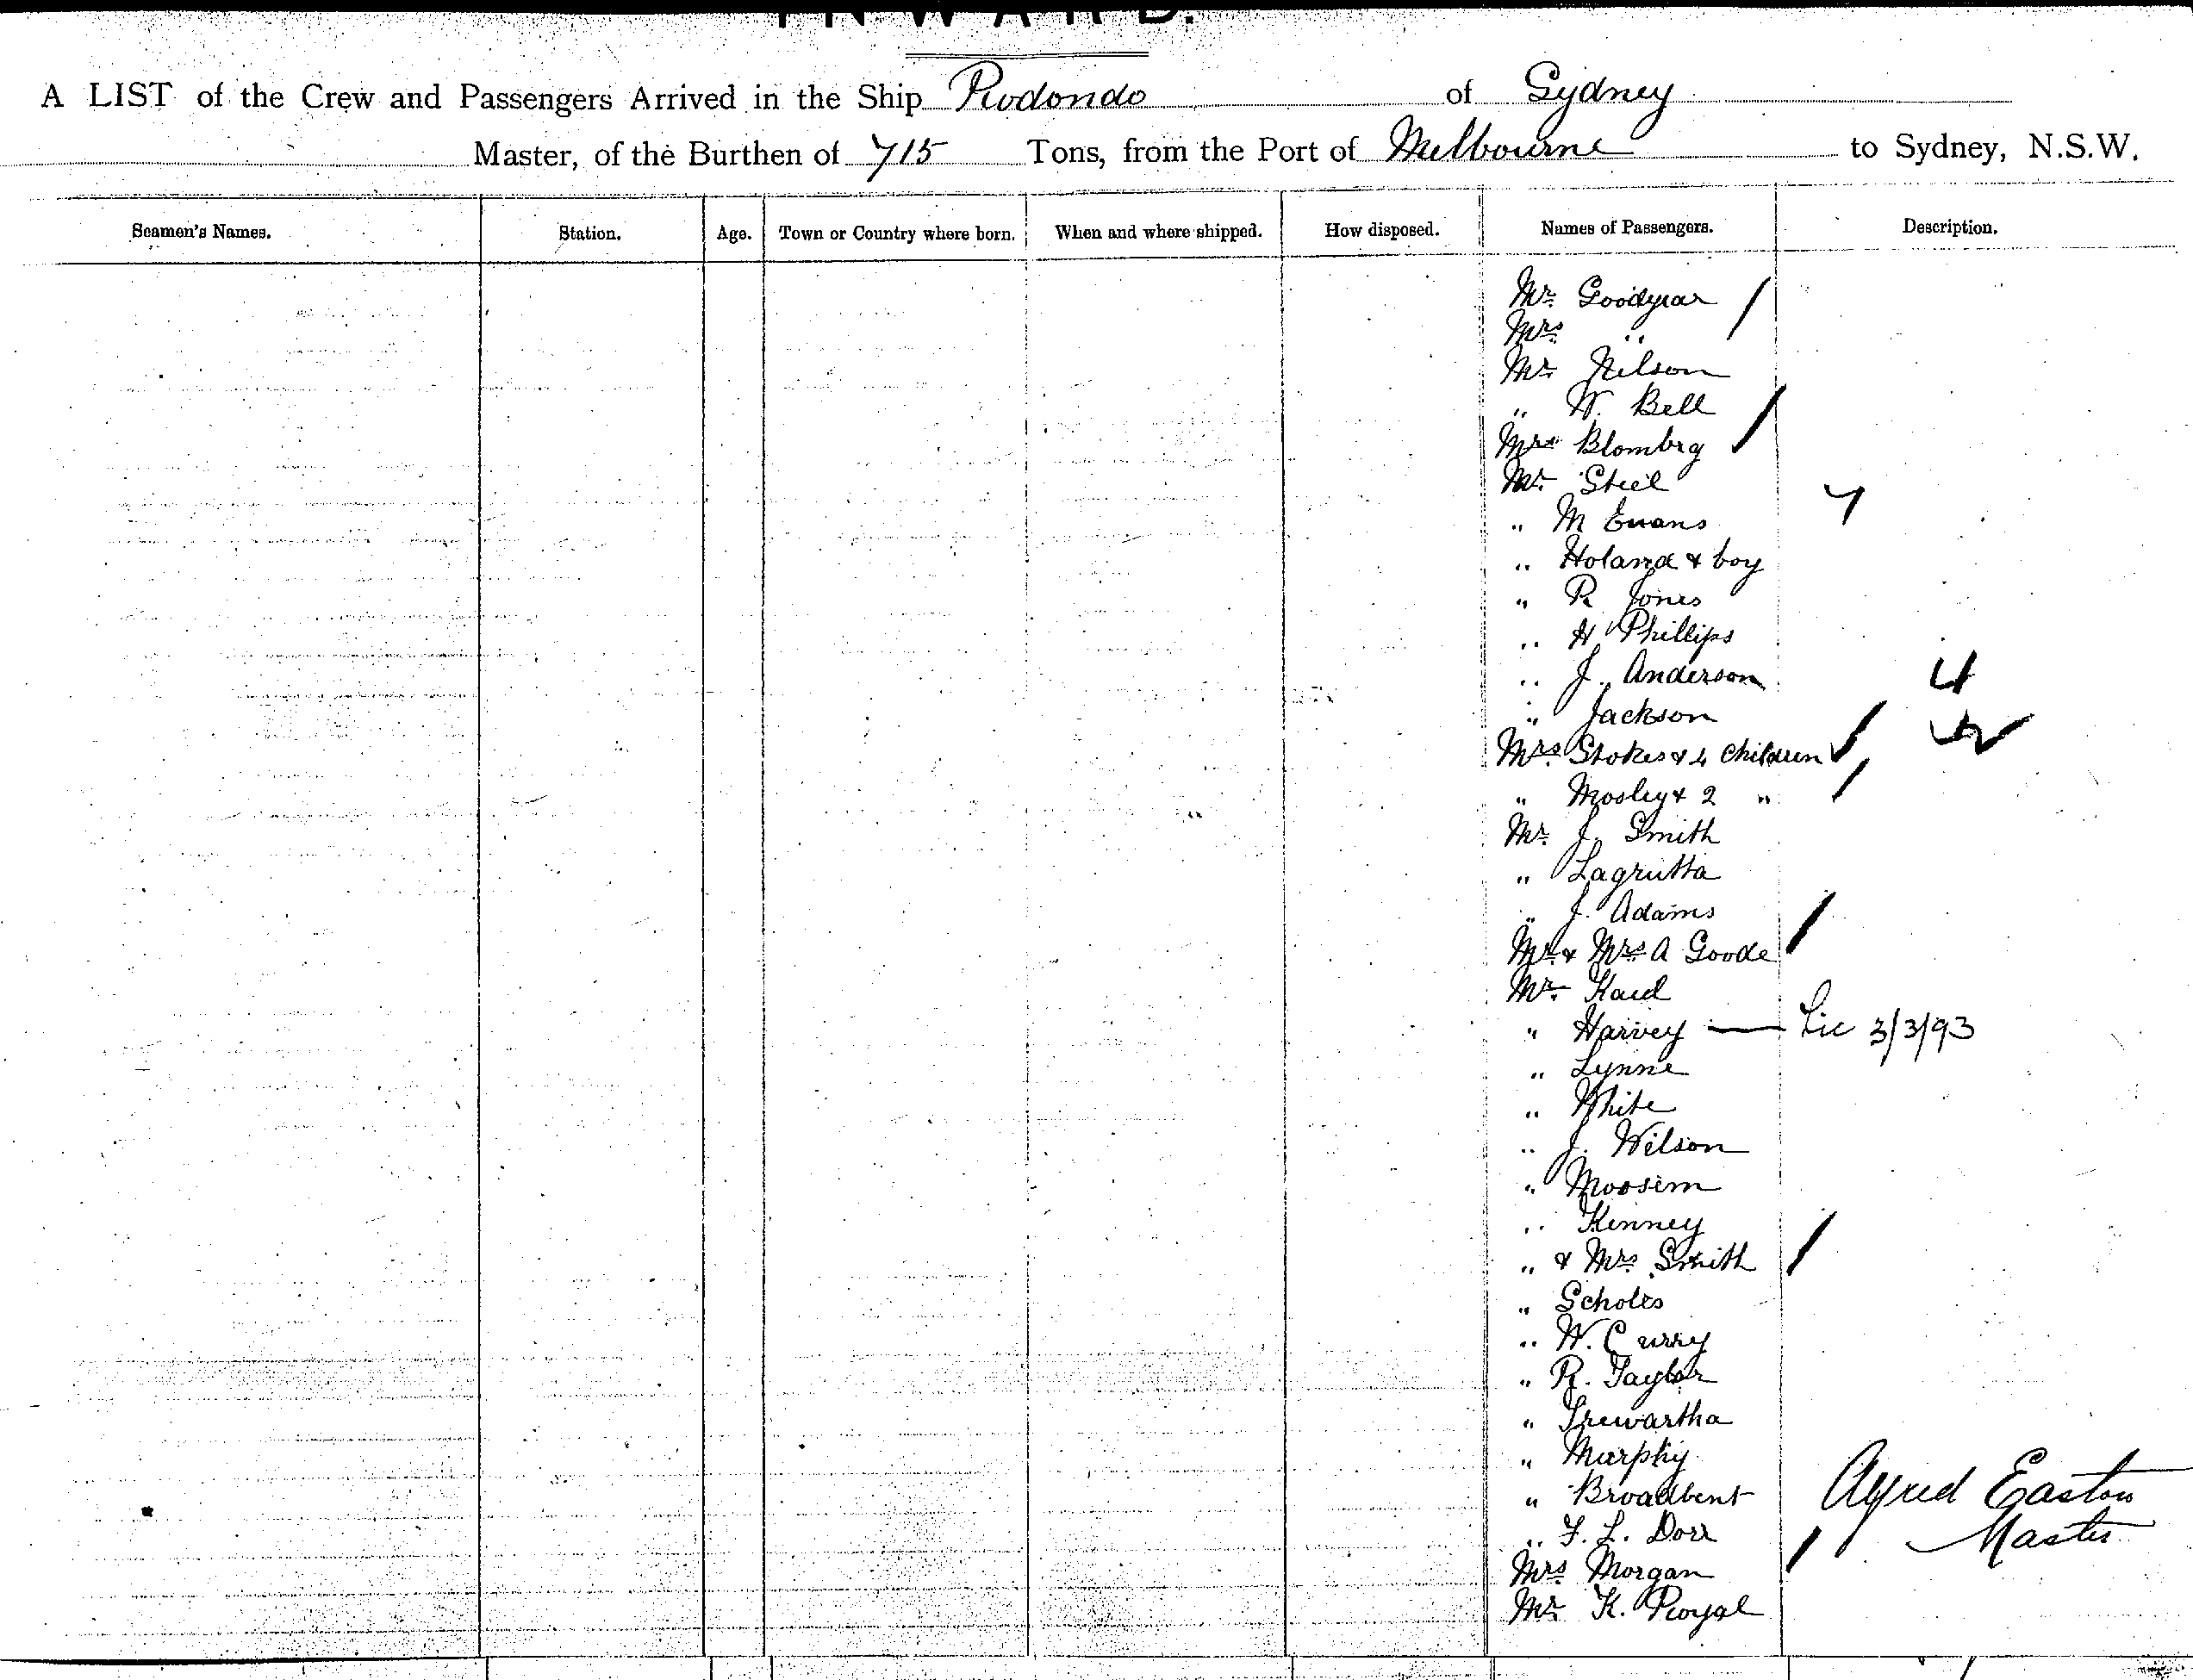 INWARD.
A LIST of the Crew and Passengers Arrived in the Ship Rodondo of Sydney
Master, of the Burthen of 715 Tons, from the Port of Melbourne to Sydney, N.S.W.
Seamen's Names. Station. Age. Town or Country where born. When and where shipped. How disposed. Names of Passengers. Description.
Mr. Goodyear /
Mrs. "
Mr. Nilson
" W. Bell
Mrs Blombrg /
Mr. Steel
" M Evans 7
" Holand & boy
" R Jones
" H Phillips
" J. Anderson 4
" Jackson
Mrs. Stokes & 4 Children
" Mosley & 2 "
Mr. J. Smith
" Lagrutta
" J. Adams
Mr. & Mrs. A Goode /
Mr. Kaid
" Harvey — Lic 3/3/93
" Lynne
" White
" J. Wilson
" Moosem
" Kenney
" & Mrs. Smith /
" Scholes
" W. Curry
" R. Taylor
" Trewartha
" Murphy
" Broadbent Alfred Easton
" F. L. Dorr Master
Mrs. Morgan /
Mr. K. Royal